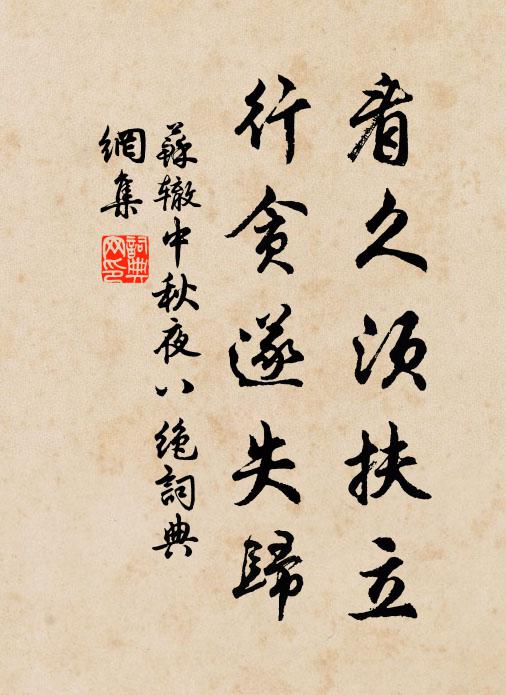 看久须扶立
行贪遂失歸
蘇辙中秋夜八绝詞典
網集
詞典
网印